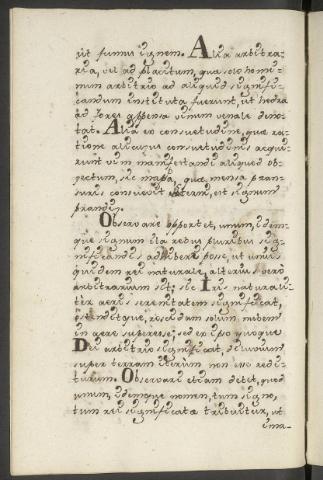 ut fumus ignem. Alia arbitra=
ria, vel ad placitum, quæ solo homi=
num arbitrio ad aliquid signifi=
candum instituta fuerint, ut hedra
ad fores appensa vinum venale deno=
tat. Alia ex consuetudine, quæ ra=
tione alicuius consuetudinis acqui=
runt vim manifestandi aliquod ob=
jectum, sic mapa, quæ mensa pran=
suris consuevit sterni, est signum
prandii.
Observare opportet, unum, idem=
que signum ita rebus pluribus sig=
nificandis adhiberi posse, ut unius
quidem rei naturale, alterius vero
arbitrarium sit; sic Iris naturali=
ter aeris serenitatem significat,
ostenditque, roscidam solum nubem
in aere superesse; sed ex ipso quoque
Dei arbitrio significat, diluvium
super terram iterum non esse redi=
turum. Observari etiam debet, quod
unum, idemque nomen, tum signo,
tum rei significatæ tribuitur, ut
ima-